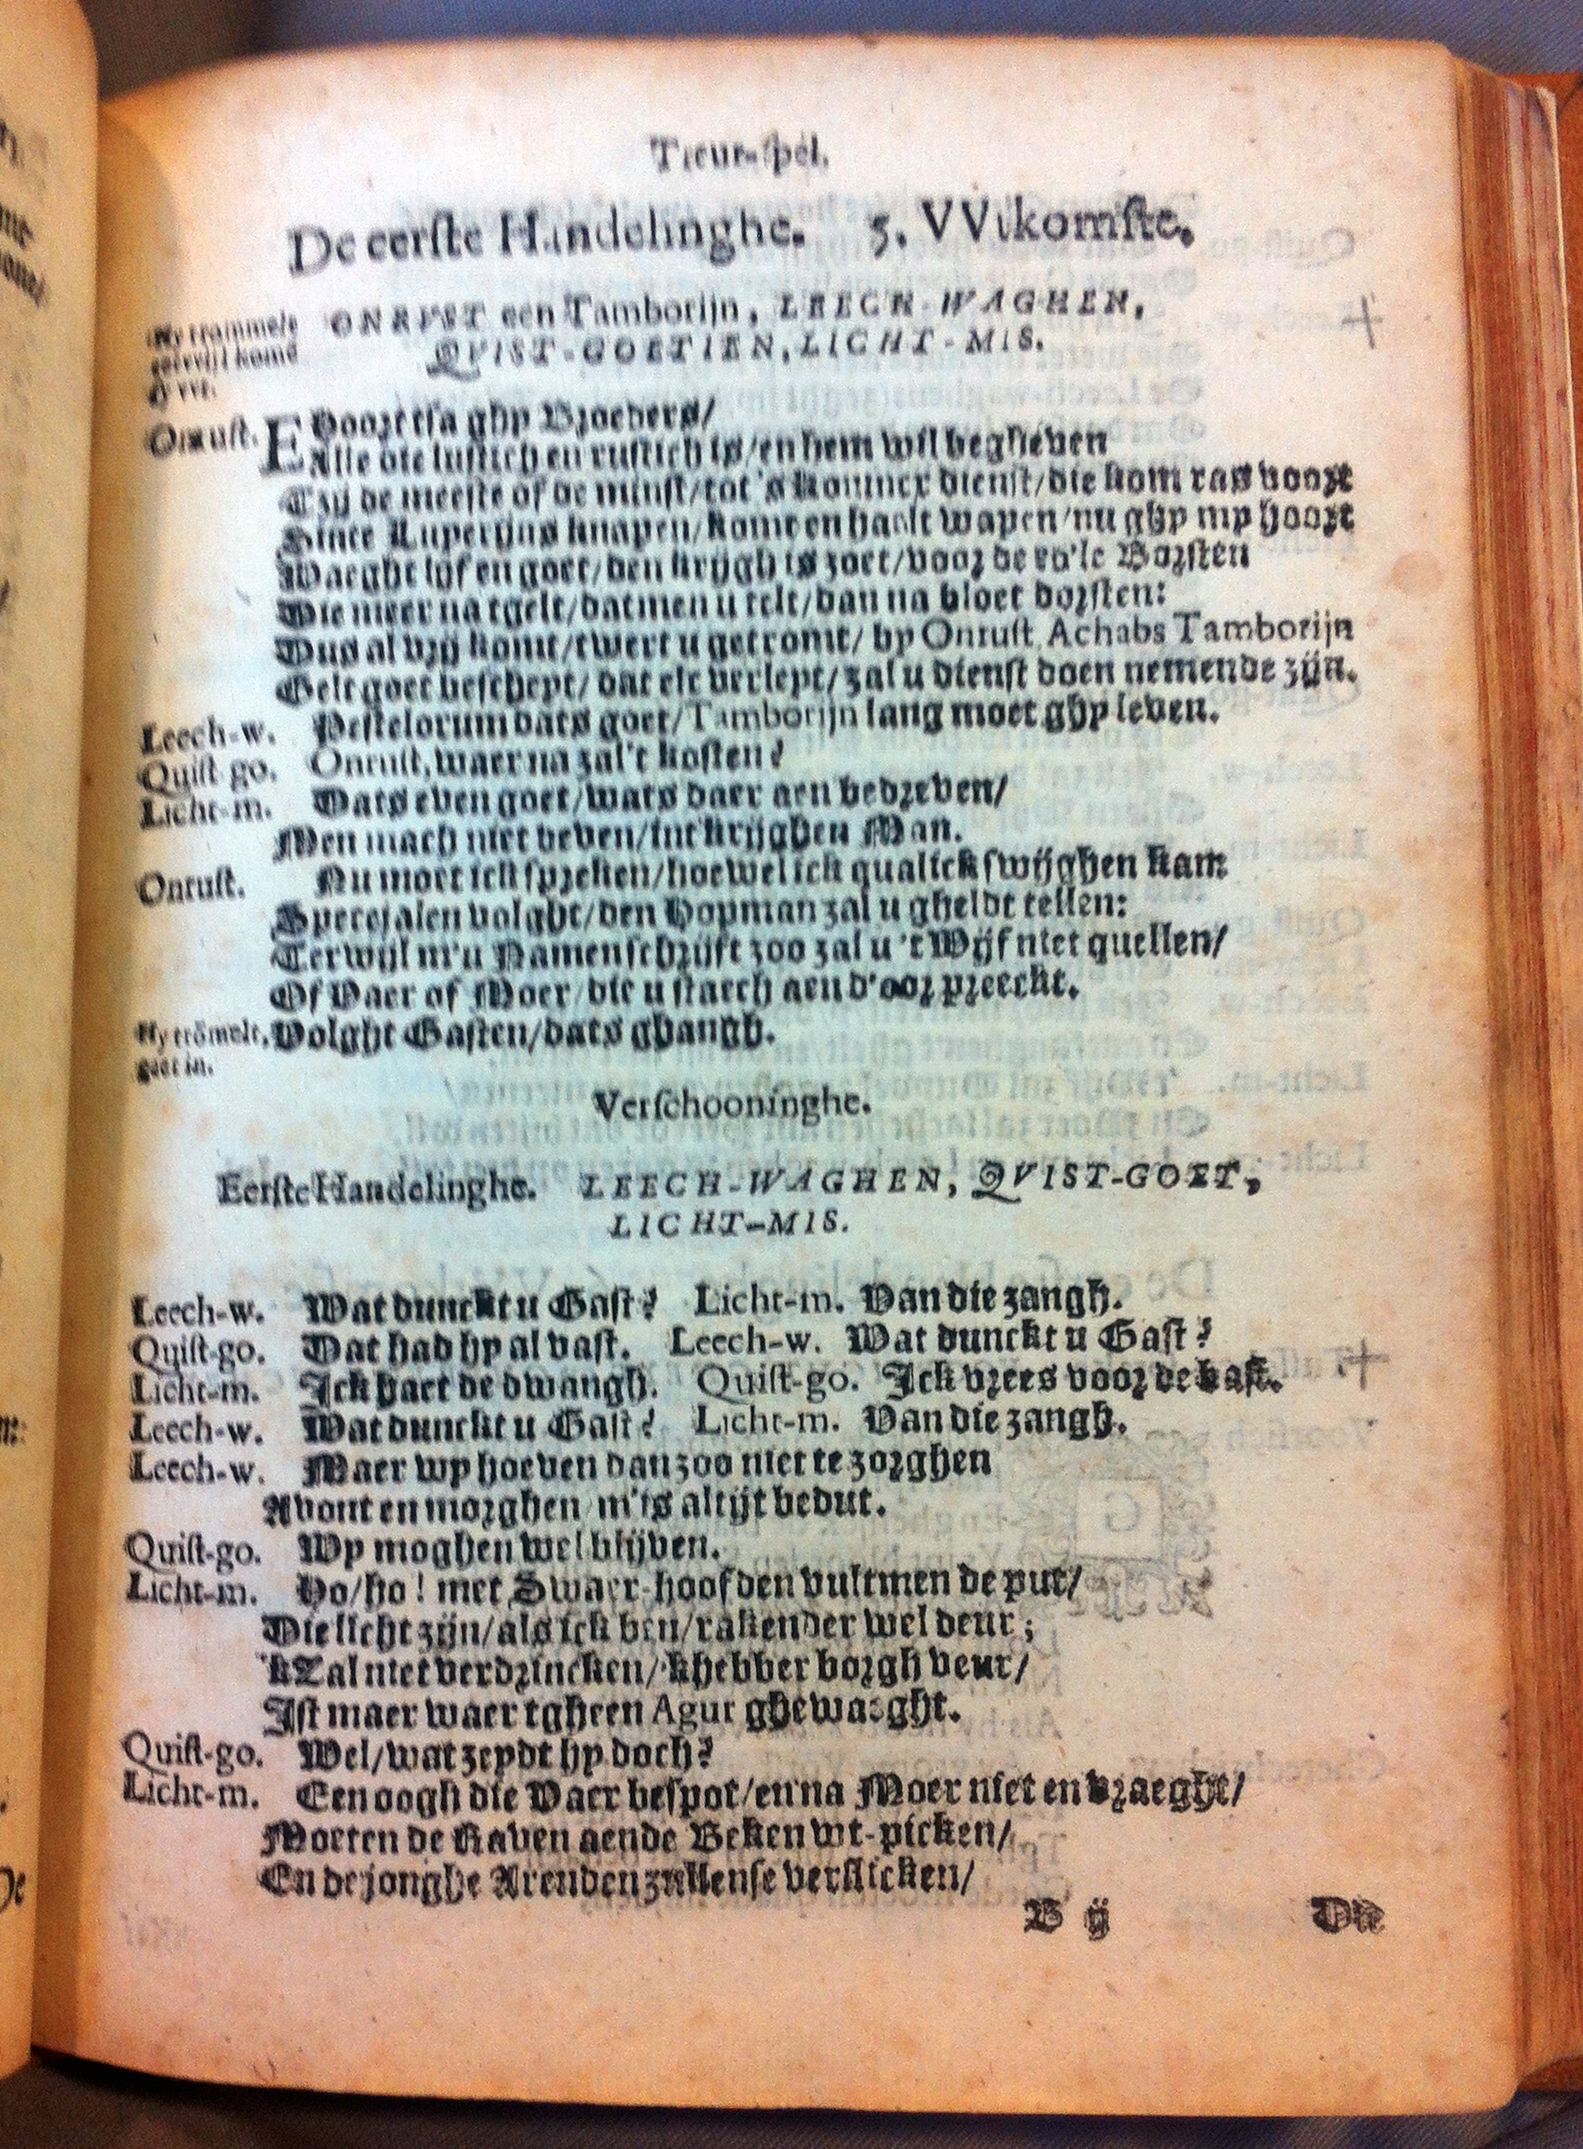 Treur-spel.
De eerste Handelinghe. 5. VVtkomste.
Hy trommelt ONRVST een Tamborijn, LEECH-WAGHEN,
terwijl komd QVIST-GOETIEN, LICHT-MIS.
sy vvt.
Onrust. EHoort tsa ghy Broeders/
Alle die lustich en rustich is/en hem wil begheven
Tzy de meeste of de minst/tot 's Konincx dienst/die kom ras voort
Sinte Rupertijns knapen/komt en haelt wapen/nu ghy my hoort
Waeght lijf en goet/den krijgh is zoet/voor de vo'le Borsten
Die meer na tgelt/datmen u telt/dan na bloet dorsten:
Dus al vry komt/twert u getromt/by Onrust Achabs Tamborijn
Gelt goet beschept/dat elc verlept/zal u dienst doen nemende zijn.
Leech-w. Pestelorum dats goet/Tamborijn lang moet ghy leven.
Quist-go. Onrust, waer na zal't kosten?
Licht-m. Dats even goet/wats daer aen bedreven/
Men mach niet beven/int krijghen Man.
Onrust. Nu moet ick spreken/hoewel ick qualick swijghen kan:
Specejalen volght/den Hopman zal u gheldt tellen:
Terwijl m'u Namen schrijft zoo zal u 't Wijf niet quellen/
Of Vaer of Moer/die u staech aen d'oor preeckt.
Hy trõmelt, Volght Gasten/dats ghangh.
gaet in.
Verschooninghe.
Eerste Handelinghe. LEECH-WAGHEN, QVIST-GOET,
LICHT-MIS.
Leech-w. Wat dunckt u Gast? Licht-m. Van die zangh.
Quist-go. Dat had hy al vast. Leech-w. Wat dunckt u Gast?
Licht-m. Ick haet de dwangh. Quist-go. Ick vrees voor de bast.
Leech-w. Wat dunckt u Gast? Licht-m. Van die zangh.
Leech-w. Maer wy hoeven dan zoo niet te zorghen
Avont en morghen/m'is altijt bedut.
Quist-go. Wy moghen wel blijven.
Licht-m. Ho/ho! met Swaer-hoofden vultmen de put/
Die licht zijn/als ick ben/raken der wel deur;
'kZal niet verdrincken/'khebber borgh veur/
Ist maer waer tgheen Agur ghewaeght.
Quist-go. Wel/wat zeydt hy doch?
Licht-m. Een oogh die Vaer bespot/en na Moer niet en vraeght/
Moeten de Raven aende Beken wt-picken/
En de jonghe Arenden zullense verslicken/
B ij Die